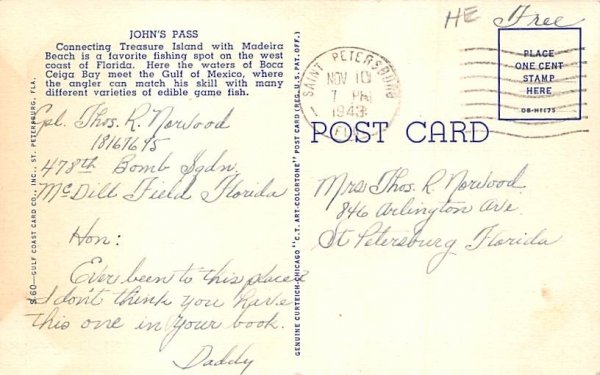 JOHN'S PASS
Connecting Treasure Island with Madeira
Beach is a favorite fishing spot on the west
coast of Florida. Here the waters of Boca
Ceiga Bay meet the Gulf of Mexico, where
the angler can match his skill with many
different varieties of edible game fish.
Cpl. Thos. R. Norwood
18167695
478th Bomb Sqdn.
McDill Field Florida
Hon:
Ever been to this place
I don't think you have
this one in your book.
Daddy
S-60—GULF COAST CARD CO., INC., ST. PETERSBURG, FLA.
GENUINE CURTEICH-CHICAGO "C.T. ART-COLORTONE" POST CARD (REG. U.S. PAT. OFF.)
SAINT PETERSBURG
NOV 10
7 PM
1943
FLA.
HE Free
PLACE
ONE CENT
STAMP
HERE
OB-H1175
POST CARD
Mrs Thos. R Norwood
846 Arlington Ave.
St Petersburg Florida